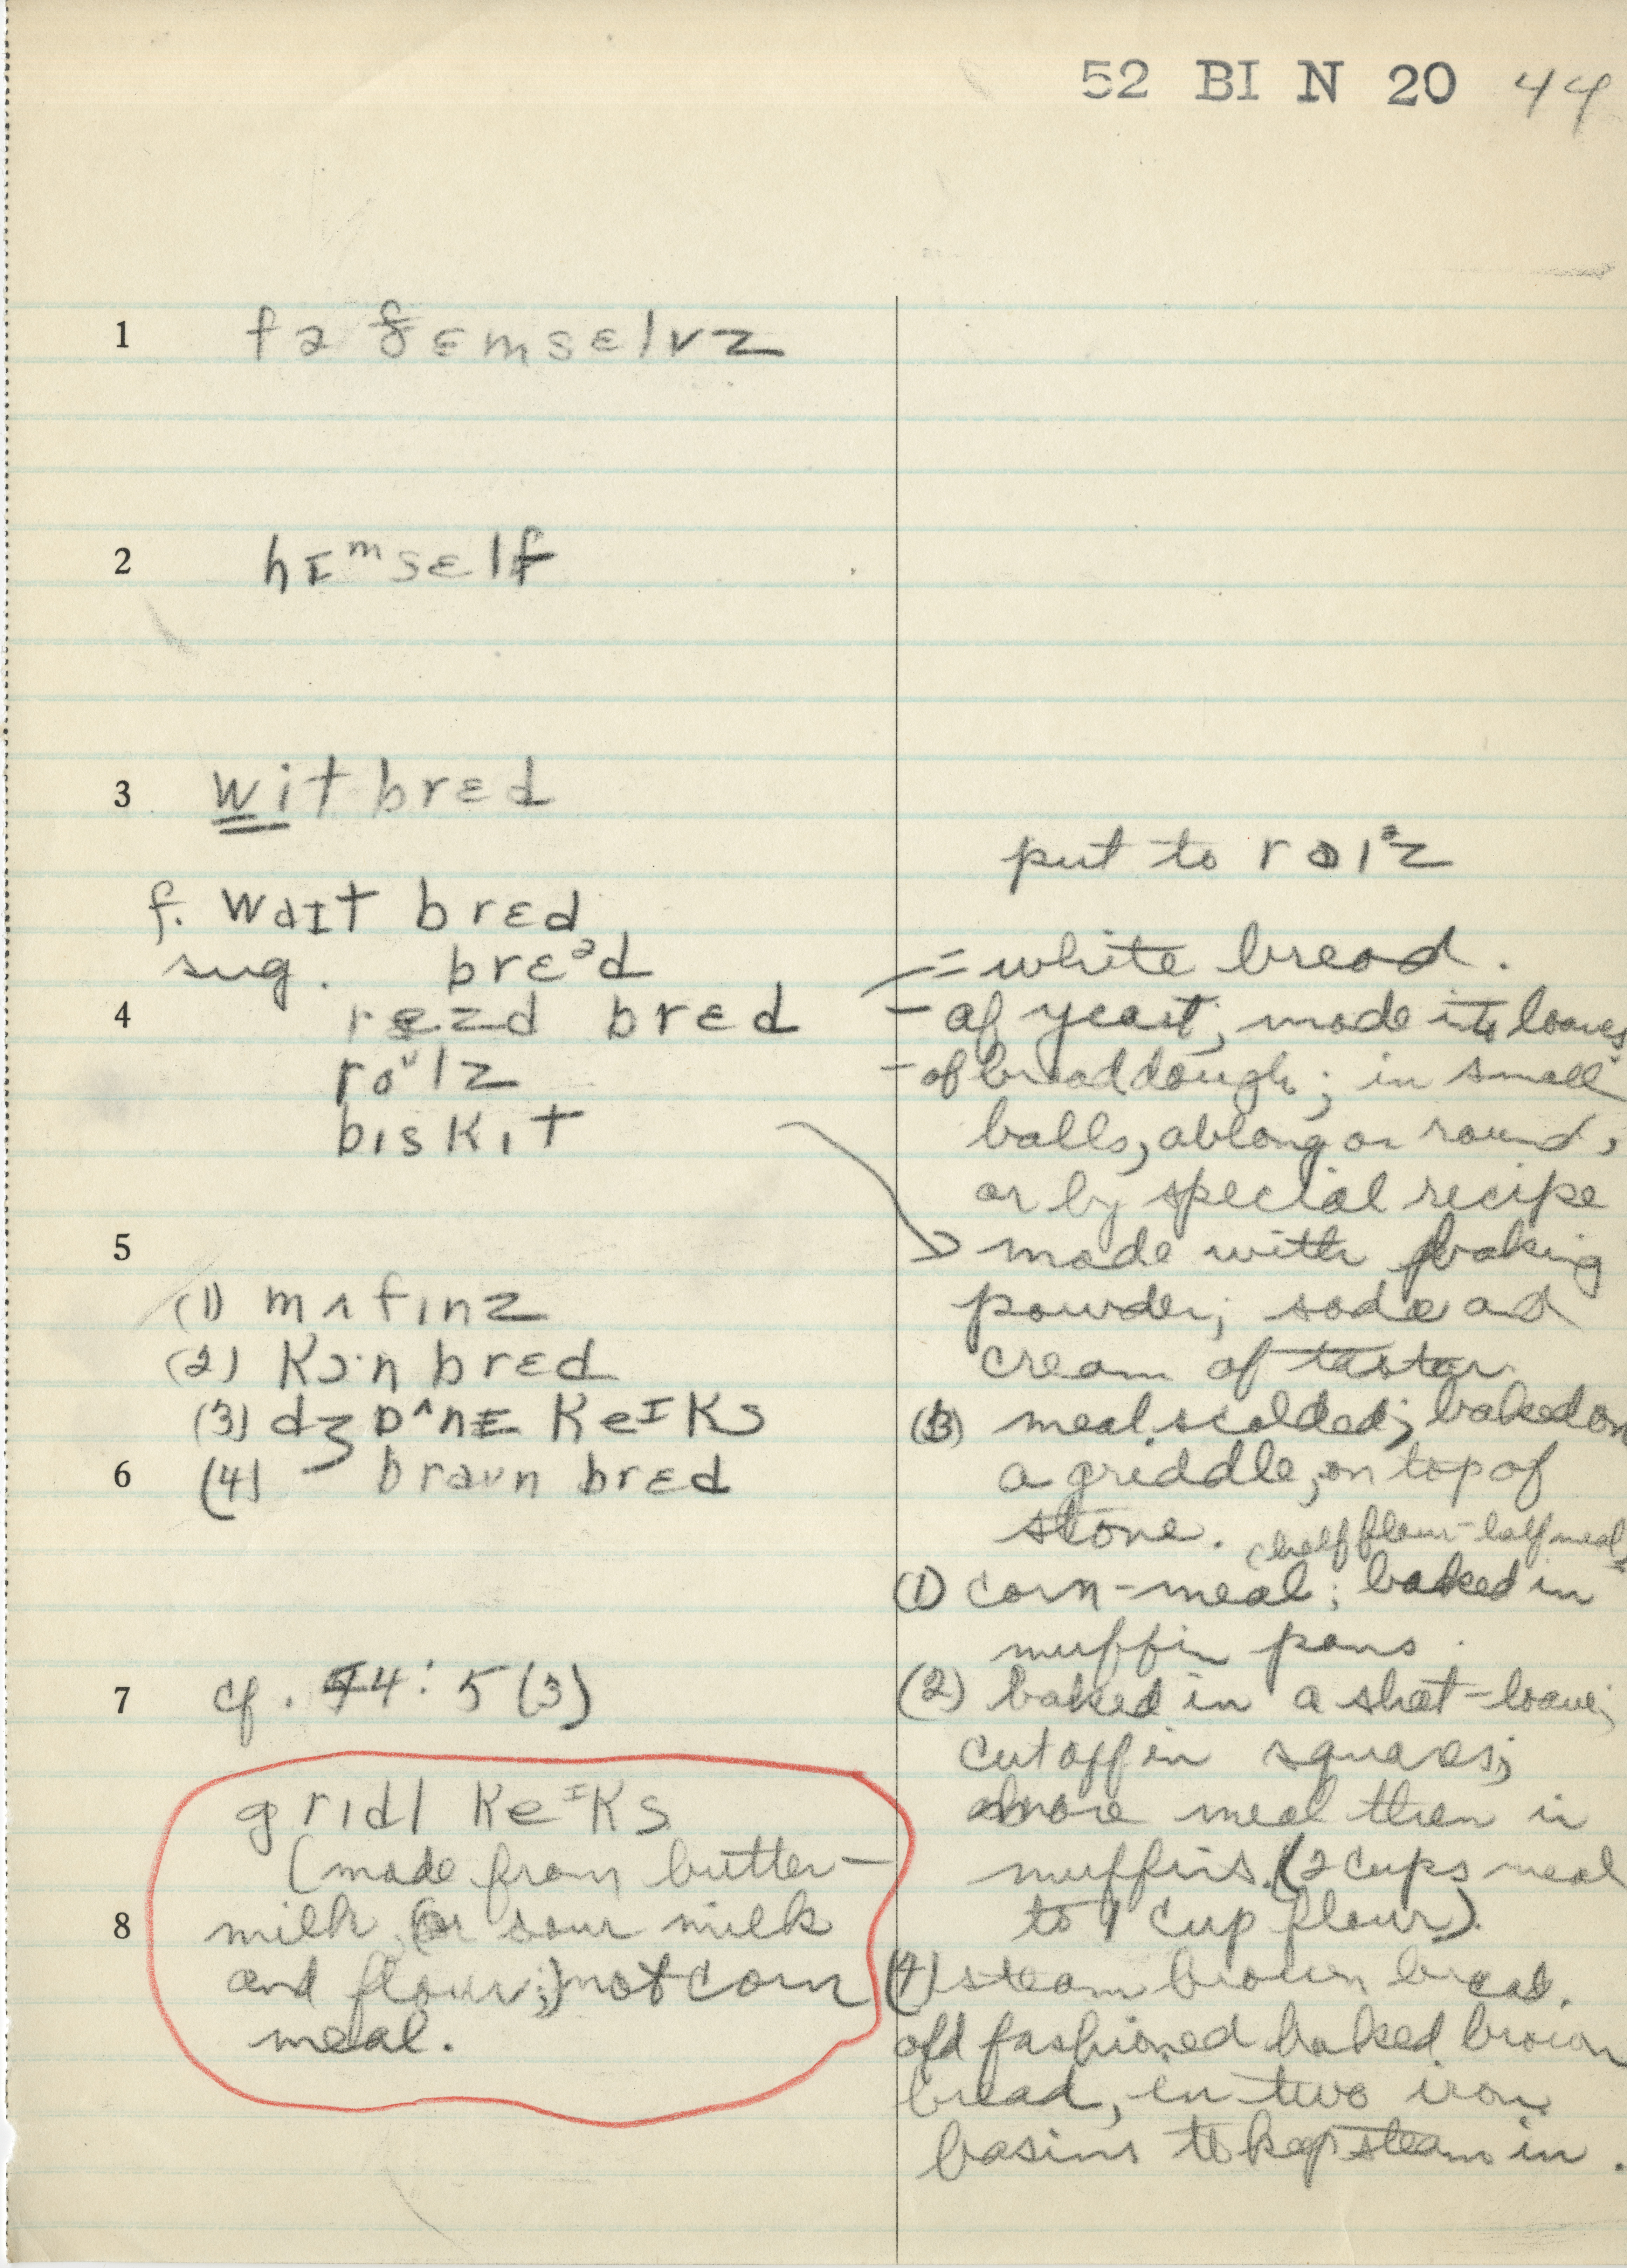 52 BI N 20 44
1 fə ðɛmsɛlvz
2 hɪᵐsɛlf
3 wit brɛd
put to
f. waɪt brɛd
sug. brɛᵊd
= white bread.
4 brɛd
- of yeast; made in loaves
roᶷlz
- of bread dough; in small
bɪskɪt
balls, oblong or round,
or by special recipe
5
made with baking
(1) mʌfɪnz
powder; soda and
(2) kɔ·n brɛd
cream of tartar
(3) keᴵks
(3) meal scalded; baked on
6 (4) braʊn brɛd
a griddle, on top of
stone. (half flour-half meal)
(1) corn-meal; baked in
muffin pans.
7 cf. 44: 5 (3)
(2) baked in a sheet-loaf;
cut off in squares;
grɪdl keᴵks
more meal then in
(made from butter-
muffins. (2 cups meal
8 milk, or sour milk
to 1 cup flour).
and flour;) not corn
(4) steam brown bread.
meal.
old fashioned baked brown
bread, in two iron
basins to keep steam in.